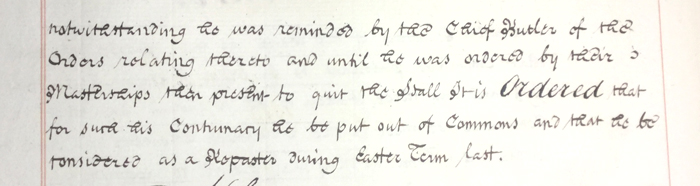 notwithstanding he was reminded by the Chief Butler of the
Orders relating thereto and until he was ordered by their
Masterships then present to quit the Hall It is Ordered that
for such his Contumacy he be put out of Commons and that he be
considered as a Repaster during Easter Term last.